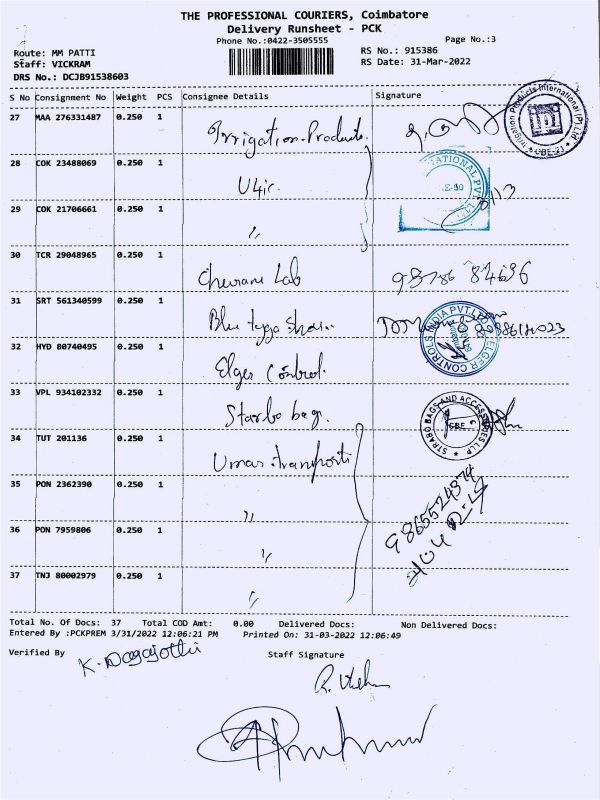 THE PROFESSIONAL COURIERS, Coimbatore
Delivery Runsheet - PCK
Phone No.:0422-3505555
Page No.:3
Route: MM PATTI
RS No.: 915386
Staff: VICKRAM
RS Date: 31-Mar-2022
DRS No.: DCJB91538603
S No Consignment No Weight PCS Consignee Details Signature
27 MAA 276331487 0.250 1 Irrigation Products
Irrigation Products International (P) Ltd
CBE-23
28 COK 23488069 0.250 1
29 COK 21706661 0.250 1 "
30 TCR 29048965 0.250 1 Lab
31 SRT 561340599 0.250 1 Blue
32 HYD 80740495 0.250 1 Elger Control
ELGER CONTROLS INDIA PVT LTD
33 VPL 934102332 0.250 1 Starbo bag
STRABO BAGS AND ACCESSORIES LLP
CBE
34 TUT 201136 0.250 1 Umar transport
35 PON 2362390 0.250 1 "
9865524374
36 PON 7959806 0.250 1 "
37 TNJ 80002979 0.250 1 "
Total No. Of Docs: 37 Total COD Amt: 0.00 Delivered Docs: Non Delivered Docs:
Entered By :PCKPREM 3/31/2022 12:06:21 PM Printed On: 31-03-2022 12:06:49
Verified By
Staff Signature